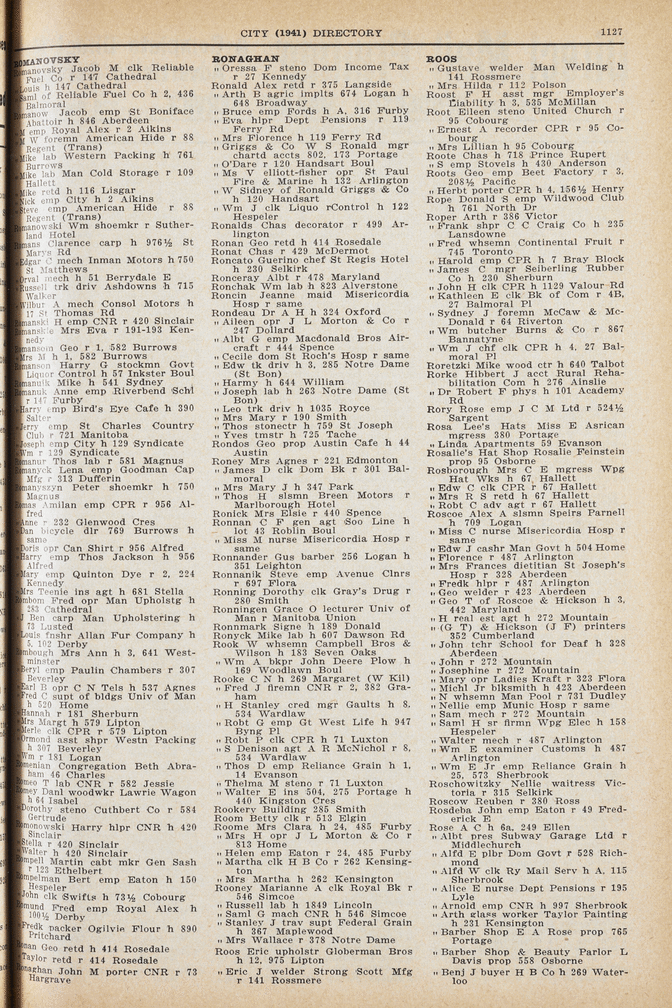 CITY (1941) DIRECTORY 1127
OMANOVSKY
manovsky Jacob M clk Reliable
Fuel Co r 147 Cathedral
Louis h 147 Cathedral
Saml of Reliable Fuel Co h 2, 436
Balmoral
manow Jacob emp St Boniface
Abattoir h 846 Aberdeen
M emp Royal Alex r 2 Aikins
M W foremn American Hide r 88
Regent (Trans)
Mike lab Western Packing h 761
Burrows
Mike lab Man Cold Storage r 109
Hallett
Mike retd h 116 Lisgar
Nick emp City h 2 Aikins
Steve emp American Hide r 88
Regent (Trans)
manowski Wm shoemkr r Suther-
land Hotel
mans Clarence carp h 976½ St
Marys Rd
Edgar C mech Inman Motors h 750
St Matthews
Orval mech h 51 Berrydale E
Russell trk driv Ashdowns h 715
Walker
Wilbur A mech Consol Motors h
17 St Thomas Rd
manski H emp CNR r 420 Sinclair
manskie Mrs Eva r 191-193 Ken-
nedy
manson Geo r 1, 582 Burrows
Mrs M h 1, 582 Burrows
manson Harry G stockmn Govt
Liquor Control h 57 Inkster Boul
manuik Mike h 541 Sydney
manuk Anne emp Riverbend Schl
r 147 Furby
Harry emp Bird's Eye Cafe h 390
Salter
Jerry emp St Charles Country
Club r 721 Manitoba
Joseph emp City h 129 Syndicate
Wm r 129 Syndicate
manur Thos lab r 581 Magnus
manyck Lena emp Goodman Cap
Mfg r 313 Dufferin
manyszyn Peter shoemkr h 750
Magnus
mas Amilan emp CPR r 956 Al-
fred
Anne r 232 Glenwood Cres
Dan bicycle dlr 769 Burrows h
same
Doris opr Can Shirt r 956 Alfred
Harry emp Thos Jackson h 956
Alfred
Mary emp Quinton Dye r 2, 224
Kennedy
Mrs Teenie ins agt h 681 Stella
mbom Fred opr Man Upholstg h
283 Cathedral
J Ben carp Man Upholstering h
13 Lusted
Louis fnshr Allan Fur Company h
5, 102 Derby
mbough Mrs Ann h 3, 641 West-
minster
Beryl emp Paulin Chambers r 307
Beverley
Earl B opr C N Tels h 537 Agnes
Fred C supt of bldgs Univ of Man
h 520 Home
Hannah r 181 Sherburn
Mrs Margt h 579 Lipton
Merle clk CPR r 579 Lipton
Ormond asst shpr Westn Packing
h 307 Beverley
Wm r 181 Logan
menian Congregation Beth Abra-
ham 46 Charles
meo T lab CNR r 582 Jessie
mey Danl woodwkr Lawrie Wagon
h 64 Isabel
Dorothy steno Cuthbert Co r 584
Gertrude
monowski Harry hlpr CNR h 420
Sinclair
Stella r 420 Sinclair
Walter h 420 Sinclair
mpell Martin cabt mkr Gen Sash
r 123 Ethelbert
mpelman Bert emp Eaton h 150
Hespeler
John clk Swifts h 73½ Cobourg
mund Fred emp Royal Alex h
100½ Derby
Fredk packer Ogilvie Flour h 890
Pritchard
nan Geo retd h 414 Rosedale
Taylor retd r 414 Rosedale
naghan John M porter CNR r 73
Hargrave
RONAGHAN
„ Oressa F steno Dom Income Tax
r 27 Kennedy
Ronald Alex retd r 375 Langside
„ Arth B agric implts 674 Logan h
648 Broadway
„ Bruce emp Fords h A, 316 Furby
„ Eva hlpr Dept Pensions r 119
Ferry Rd
„ Mrs Florence h 119 Ferry Rd
„ Griggs & Co W S Ronald mgr
chartd accts 802, 173 Portage
„ O'Dare r 120 Handsart Boul
„ Ms V elliott-fisher opr St Paul
Fire & Marine h 132 Arlington
„ W Sidney of Ronald Griggs & Co
h 120 Handsart
„ Wm J clk Liquo rControl h 122
Hespeler
Ronalds Chas decorator r 499 Ar-
lington
Ronan Geo retd h 414 Rosedale
Ronat Chas r 429 McDermot
Roncato Guerino chef St Regis Hotel
h 230 Selkirk
Ronceray Albt r 478 Maryland
Ronchak Wm lab h 823 Alverstone
Roncin Jeanne maid Misericordia
Hosp r same
Rondeau Dr A H h 324 Oxford
„ Aileen opr J L Morton & Co r
247 Dollard
„ Albt G emp Macdonald Bros Air-
craft r 444 Spence
„ Cecile dom St Roch's Hosp r same
„ Edw lk driv h 3, 285 Notre Dame
(St Bon)
„ Harmy h 644 William
„ Joseph lab h 263 Notre Dame (St
Bon)
„ Leo trk driv h 1035 Royce
„ Mrs Mary r 190 Smith
„ Thos stonectr h 759 St Joseph
„ Yves tmstr h 725 Tache
Rondos Geo prop Austin Cafe h 44
Austin
Roney Mrs Agnes r 221 Edmonton
„ James D clk Dom Bk r 301 Bal-
moral
„ Mrs Mary J h 347 Park
„ Thos H slsmn Breen Motors r
Marlborough Hotel
Ronick Mrs Elsie r 440 Spence
Ronnan C F gen agt Soo Line h
lot 43 Roblin Boul
„ Miss M nurse Misericordia Hosp r
same
Ronnander Gus barber 256 Logan h
351 Leighton
Ronnanik Steve emp Avenue Clnrs
r 697 Flora
Ronning Dorothy clk Gray's Drug r
280 Smith
Ronningen Grace O lecturer Univ of
Man r Manitoba Union
Ronnmark Signe h 189 Donald
Ronyck Mike lab h 607 Dawson Rd
Rook W whsemn Campbell Bros &
Wilson h 183 Seven Oaks
„ Wm A bkpr John Deere Plow h
169 Woodlawn Boul
Rooke C N h 269 Margaret (W Kil)
„ Fred J firemn CNR r 2, 382 Gra-
ham
„ H Stanley cred mgr Gaults h 8,
534 Wardlaw
„ Robt G emp Gt West Life h 947
Byng Pl
„ Robt P clk CPR h 71 Luxton
„ S Denison agt A R McNichol r 8,
534 Wardlaw
„ Thos D emp Reliance Grain h 1,
14 Evanson
„ Thelma M steno r 71 Luxton
„ Walter E ins 504, 275 Portage h
440 Kingston Cres
Rookery Building 285 Smith
Room Betty clk r 513 Elgin
Roome Mrs Clara h 24, 485 Furby
„ Mrs H opr J L Morton & Co r
813 Home
„ Helen emp Eaton r 24, 485 Furby
„ Martha clk H B Co r 262 Kensing-
ton
„ Mrs Martha h 262 Kensington
Rooney Marianne A clk Royal Bk r
546 Simcoe
„ Russell lab h 1849 Lincoln
„ Saml G mach CNR h 546 Simcoe
„ Stanley J trav supt Federal Grain
h 367 Maplewood
„ Mrs Wallace r 378 Notre Dame
Roos Eric upholstr Globerman Bros
h 12, 975 Lipton
„ Eric J welder Strong Scott Mfg
r 141 Rossmere
ROOS
„ Gustave welder Man Welding h
141 Rossmere
„ Mrs Hilda r 112 Polson
Roost F H asst mgr Employer's
Liability h 3, 535 McMillan
Root Eileen steno United Church r
95 Cobourg
„ Ernest A recorder CPR r 95 Co-
bourg
„ Mrs Lillian h 95 Cobourg
Roote Chas h 718 Prince Rupert
„ S emp Stovels h 430 Anderson
Roots Geo emp Beet Factory r 3,
208½ Pacific
„ Herbt porter CPR h 4, 156½ Henry
Rope Donald S emp Wildwood Club
h 761 North Dr
Roper Arth r 386 Victor
„ Frank shpr C C Craig Co h 235
Lansdowne
„ Fred whsemn Continental Fruit r
745 Toronto
„ Harold emp CPR h 7 Bray Block
„ James C mgr Seiberling Rubber
Co h 230 Sherburn
„ John H clk CPR h 1129 Valour Rd
„ Kathleen E clk Bk of Com r 4B,
27 Balmoral Pl
„ Sydney J foremn McCaw & Mc-
Donald r 64 Riverton
„ Wm butcher Burns & Co r 867
Bannatyne
„ Wm J chf clk CPR h 4, 27 Bal-
moral Pl
Roretzki Mike wood ctr h 640 Talbot
Rorke Hibbert J acct Rural Reha-
bilitation Com h 276 Ainslie
„ Dr Robert F phys h 101 Academy
Rd
Rory Rose emp J C M Ltd r 524½
Sargent
Rosa Lee's Hats Miss E Asrican
mgress 380 Portage
„ Linda Apartments 59 Evanson
Rosalie's Hat Shop Rosalie Feinstein
prop 95 Osborne
Rosborough Mrs C E mgress Wpg
Hat Wks h 67 Hallett
„ Edw C clk CPR r 67 Hallett
„ Mrs R S retd h 67 Hallett
„ Robt C adv agt r 67 Hallett
Roscoe Alex A slsmn Speirs Parnell
h 709 Logan
„ Miss C nurse Misericordia Hosp r
same
„ Edw J cashr Man Govt h 504 Home
„ Florence r 487 Arlington
„ Mrs Frances dietitian St Joseph's
Hosp r 328 Aberdeen
„ Fredk hlpr r 487 Arlington
„ Geo welder r 423 Aberdeen
„ Geo T of Roscoe & Hickson h 3,
442 Maryland
„ H real est agt h 272 Mountain
„ (G T) & Hickson (J F) printers
352 Cumberland
„ John tchr School for Deaf h 328
Aberdeen
„ John r 272 Mountain
„ Josephine r 272 Mountain
„ Mary opr Ladies Kraft r 323 Flora
„ Michl Jr blksmith h 423 Aberdeen
„ N whsemn Man Pool r 731 Dudley
„ Nellie emp Munic Hosp r same
„ Sam mech r 272 Mountain
„ Saml H sr firmn Wpg Elec h 158
Hespeler
„ Walter mech r 487 Arlington
„ Wm E examiner Customs h 487
Arlington
„ Wm E Jr emp Reliance Grain h
25, 573 Sherbrook
Roschowitzky Nellie waitress Vic-
toria r 315 Selkirk
Roscow Reuben r 380 Ross
Rosdeba John emp Eaton r 49 Fred-
erick E
Rose A C h 6a, 249 Ellen
„ Albt pres Subway Garage Ltd r
Middlechurch
„ Alfd E plbr Dom Govt r 528 Rich-
mond
„ Alfd W clk Ry Mail Serv h A, 115
Sherbrook
„ Alice E nurse Dept Pensions r 195
Lyle
„ Arnold emp CNR h 997 Sherbrook
„ Arth glass worker Taylor Painting
h 231 Kensington
„ Barber Shop E A Rose prop 765
Portage
„ Barber Shop & Beauty Parlor L
Davis prop 558 Osborne
„ Benj J buyer H B Co h 269 Water-
loo